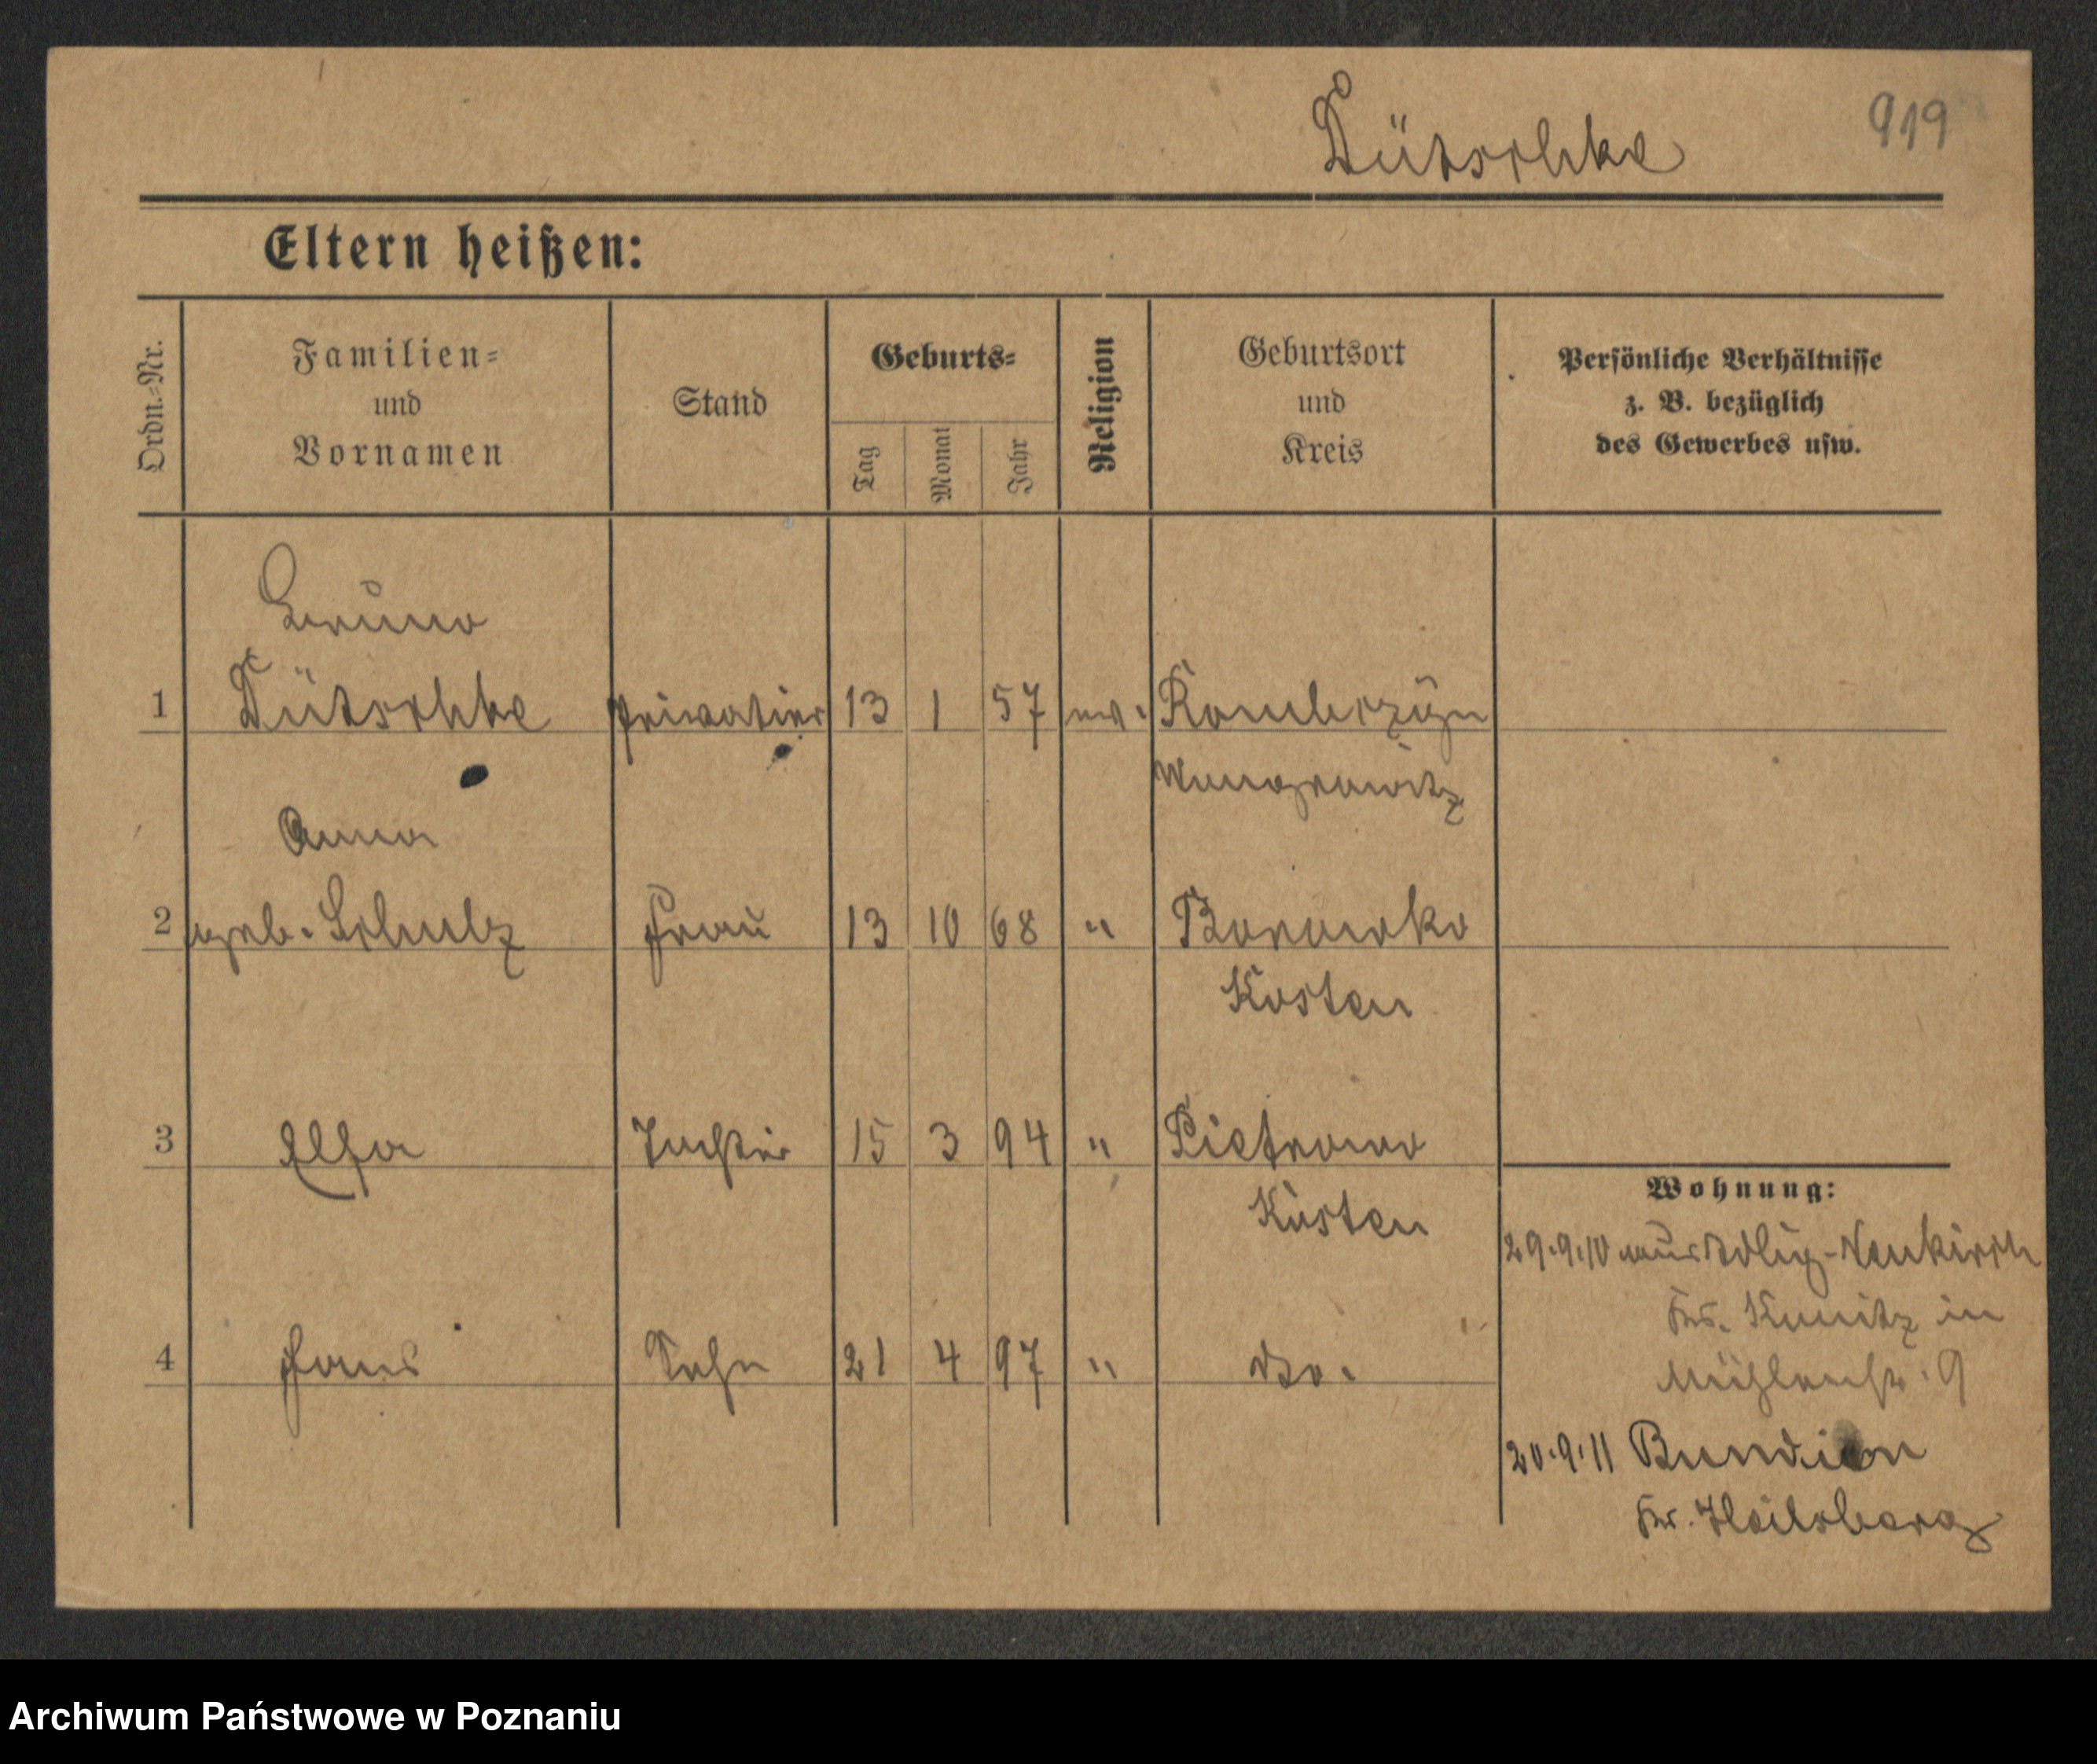 919
Dütschke
Eltern heißen:
Ordn.=Nr.
Familien=
und
Vornamen
Stand
Geburts=
Tag
Monat
Jahr
Religion
Geburtsort
und
Kreis
Persönliche Verhältnisse
z. B. bezüglich
des Gewerbes usw.
Bruno
1 Dütschke Privatier 13 1 57 ev.
Wongrowitz
Anna
2 geb. Schulz Frau 13 10 68 " Borowko
Kosten
3 Elsa Tochter 15 3 94 " Pietrowo
Kosten
4 Hans Sohn 21 4 97 " do.
Wohnung:
29.9.10 aus Adlig-Neukirch
Kr. Konitz in
Mühlenstr. 9
20.9.11
Kr. Heilsberg
Archiwum Państwowe w Poznaniu